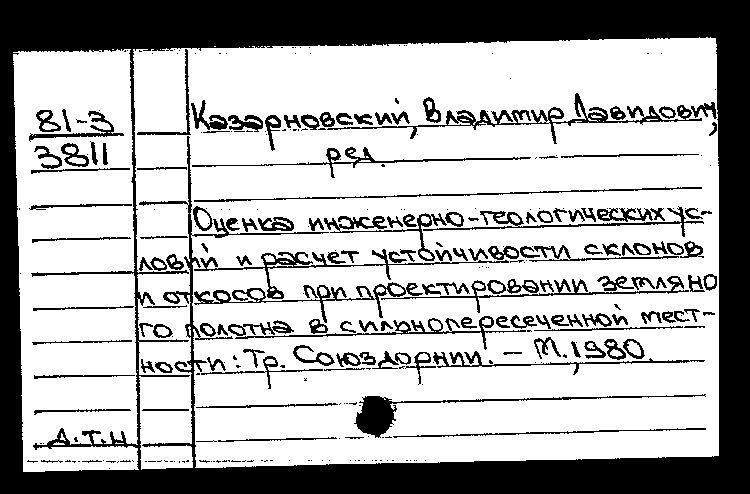 81-3
3811
Казарновский, Владимир Давидович,
ред.
Оценка инженерно-геологических ус-
ловий и расчет устойчивости склонов
и откосов при проектировании земляно
го полотна в сильнопересеченной мест-
ности: Тр. Союздорнии. – М., 1980.
Д.Т.Н.